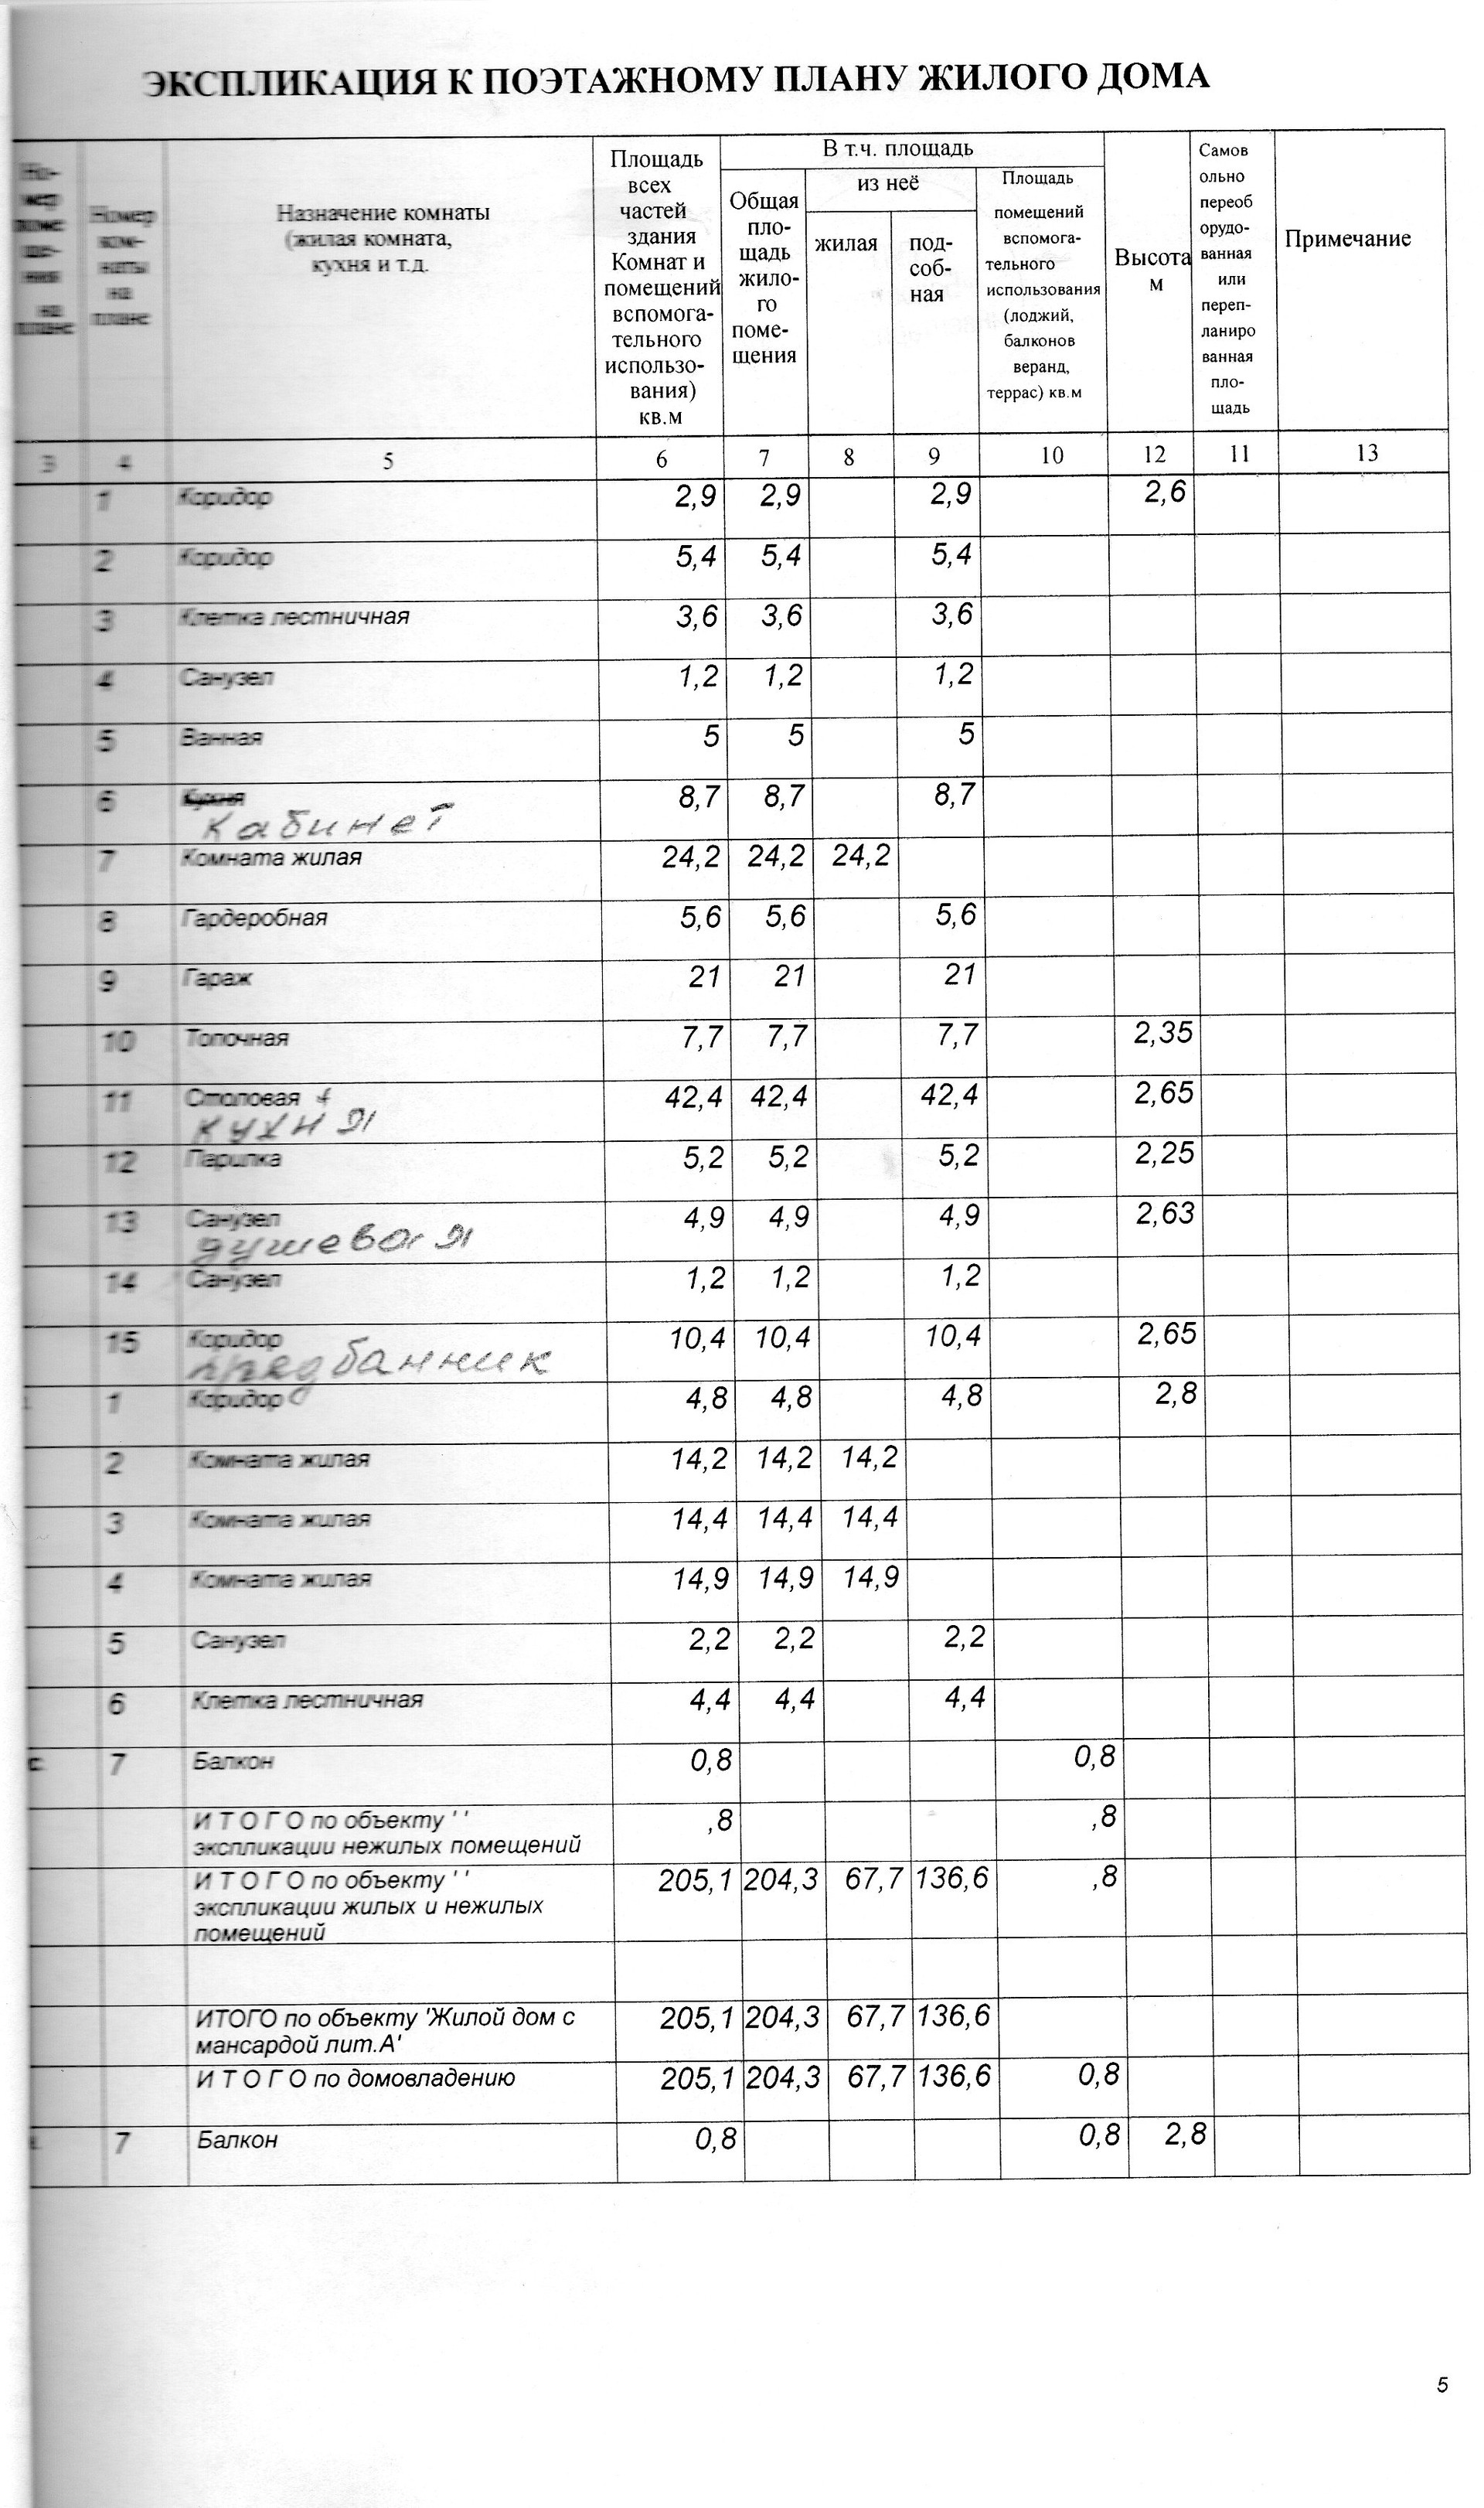 ЭКСПЛИКАЦИЯ К ПОЭТАЖНОМУ ПЛАНУ ЖИЛОГО ДОМА
Но-
мер
поме
ще-
ния
на
плане
Номер
ком-
наты
на
плане
Назначение комнаты
(жилая комната,
кухня и т.д.
Площадь
всех
частей
здания
Комнат и
помещений
вспомога-
тельного
использо-
вания)
кв.м
В т.ч. площадь
Общая
пло-
щадь
жило-
го
поме-
щения
из неё
жилая
под-
соб-
ная
Площадь
помещений
вспомога-
тельного
использования
(лоджий,
балконов
веранд,
террас) кв.м
Высота
м
Самов
ольно
переоб
орудо-
ванная
или
переп-
ланиро
ванная
пло-
щадь
Примечание
3 4 5 6 7 8 9 10 12 11 13
1 Коридор 2,9 2,9 2,9 2,6
2 Коридор 5,4 5,4 5,4
3 Клетка лестничная 3,6 3,6 3,6
4 Санузел 1,2 1,2 1,2
5 Ванная 5 5 5
6 Кухня 8,7 8,7 8,7
кабинет
7 Комната жилая 24,2 24,2 24,2
8 Гардеробная 5,6 5,6 5,6
9 Гараж 21 21 21
10 Топочная 7,7 7,7 7,7 2,35
11 Столовая + 42,4 42,4 42,4 2,65
кухня
12 Парилка 5,2 5,2 5,2 2,25
13 Санузел 4,9 4,9 4,9 2,63
душевая
14 Санузел 1,2 1,2 1,2
15 Коридор 10,4 10,4 10,4 2,65
предбанник
1 Коридор 4,8 4,8 4,8 2,8
2 Комната жилая 14,2 14,2 14,2
3 Комната жилая 14,4 14,4 14,4
4 Комната жилая 14,9 14,9 14,9
5 Санузел 2,2 2,2 2,2
6 Клетка лестничная 4,4 4,4 4,4
7 Балкон 0,8 0,8
И Т О Г О по объекту ' ' ,8 ,8
экспликации нежилых помещений
И Т О Г О по объекту ' ' 205,1 204,3 67,7 136,6 ,8
экспликации жилых и нежилых
помещений
ИТОГО по объекту 'Жилой дом с 205,1 204,3 67,7 136,6
мансардой лит.А'
И Т О Г О по домовладению 205,1 204,3 67,7 136,6 0,8
7 Балкон 0,8 0,8 2,8
5